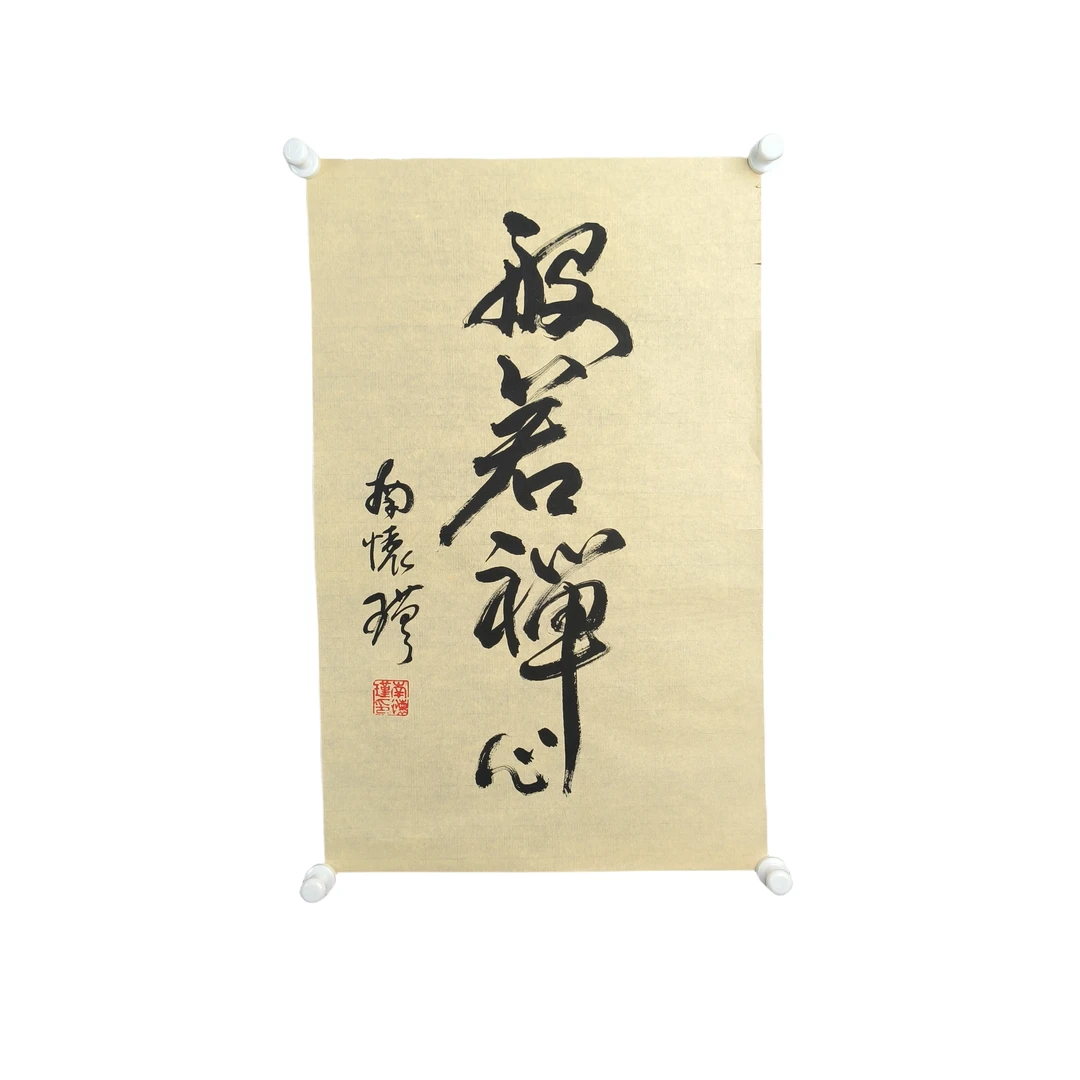 般若禪心
南懷瑾
南懷瑾印